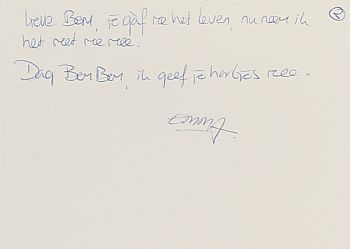 ②
Lieve Bom, je gaf me het leven, nu neem ik
het met me mee.
Dag BomBom, ik geef je hartjes mee.